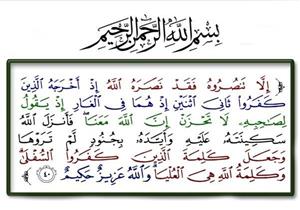 بسم الله الرحمن الرحيم
﴿إِلَّا تَنصُرُوهُ فَقَدْ نَصَرَهُ اللَّهُ إِذْ أَخْرَجَهُ الَّذِينَ
كَفَرُوا ثَانِيَ اثْنَيْنِ إِذْ هُمَا فِي الْغَارِ إِذْ يَقُولُ
لِصَاحِبِهِ لَا تَحْزَنْ إِنَّ اللَّهَ مَعَنَا فَأَنزَلَ اللَّهُ
سَكِينَتَهُ عَلَيْهِ وَأَيَّدَهُ بِجُنُودٍ لَّمْ تَرَوْهَا
وَجَعَلَ كَلِمَةَ الَّذِينَ كَفَرُوا السُّفْلَى
وَكَلِمَةُ اللَّهِ هِيَ الْعُلْيَا وَاللَّهُ عَزِيزٌ حَكِيمٌ ٤٠﴾